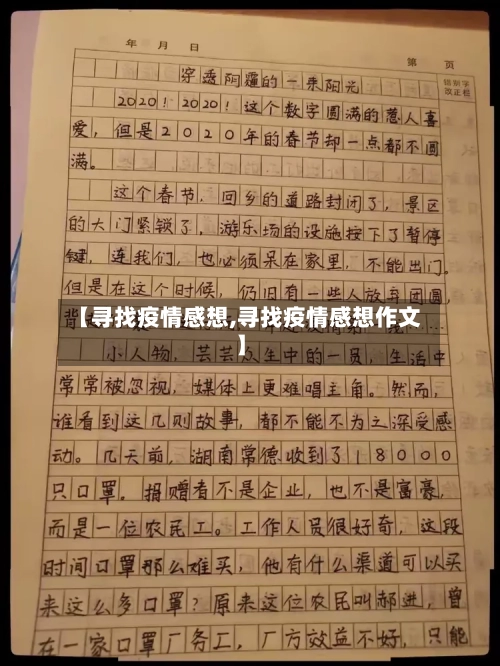 年 月 日
第 页
错别字
改正栏
穿透阴霾的一束阳光
2020！2020！这个数字圆满的惹人喜
爱，但是2020年的春节却一点都不圆
满。
这个春节，回乡的道路封闭了，景区
的大门紧锁了，游乐场的设施按下了暂停
键，连我们，也必须呆在家里，不能出门。
但是在这个时候，仍旧有一些人放弃团圆，
背
【寻找疫情感想,寻找疫情感想作文
】
小人物，芸芸众生中的一员，生活中
常常被忽视，媒体上更难唱主角。然而，
谁看到这几则故事，都不能不为之深受感
动。几天前，湖南常德收到了18000
只口罩。捐赠者不是企业，也不是富豪，
而是一位农民工。工作人员很好奇，这段
时间口罩那么难买，他有什么渠道可以买
来这么多口罩？原来这位农民叫郝进，曾
在一家口罩厂务工，厂方效益不好，只能